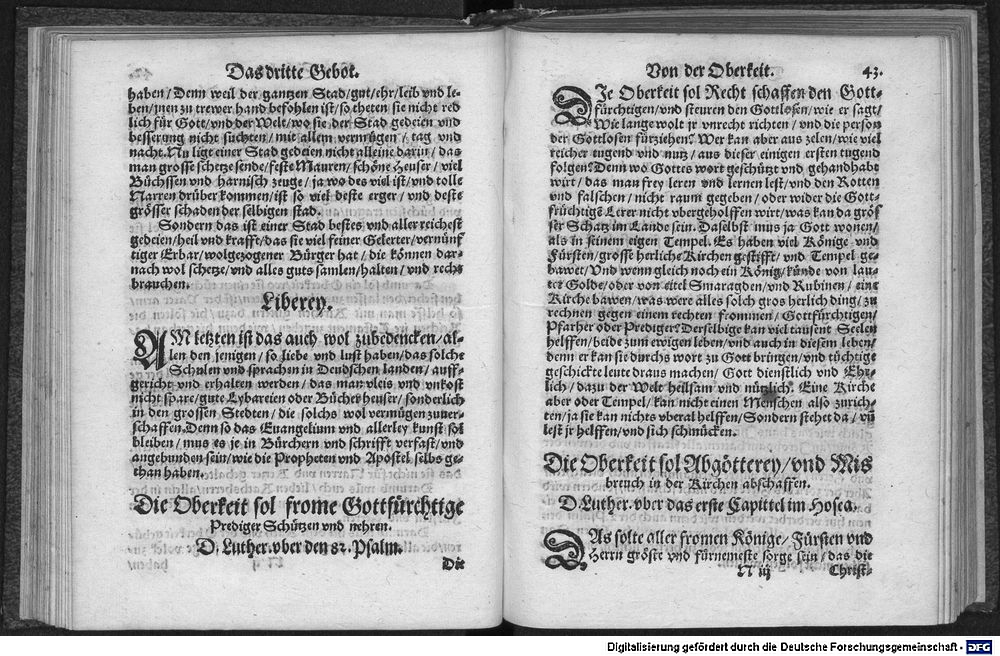 Das dritte Gebot.
haben/ Denn weil der gantzen Stad/ gut/ ehr/ leib vnd le-
ben/ jnen zu trewer hand befohlen ist/ so theten sie nicht red
lich für Gott/ vnd der Welt/ wo sie der Stad gedeien vnd
besserung nicht suchten/ mit allem vermügen/ tag vnd
nacht. Nu ligt einer Stad gedeien nicht alleine darin/ das
man grosse schetze sende/ feste Mauren/ schöne Heuser/ viel
Büchssen vnd harnisch zeuge/ ja wo des viel ist/ vnd tolle
Narren drüber kommen/ ist so viel deste erger/ vnd deste
grösser schaden der selbigen stad.
Sondern das ist einer Stad bestes vnd aller reichest
gedeien/ heil vnd krafft/ das sie viel feiner Gelerter/ vernünf
tiger Erbar/ wolgezogener Bürger hat/ die können dar-
nach wol schetze/ vnd alles guts samlen/ halten/ vnd recht
brauchen.
Liberey.
AM letzten ist das auch wol zubedencken/ al-
len den jenigen/ so liebe vnd lust haben/ das solche
Schulen vnd sprachen in Deudschen landen/ auff-
gericht vnd erhalten werden/ das man vleis vnd vnkost
nicht spare/ gute Lybareien oder Bücher heuser/ sonderlich
in den grossen Stedten/ die solchs wol vermügen zuuer-
schaffen. Denn so das Euangelium vnd allerley kunst sol
bleiben/ mus es je in Bürchern vnd schrifft verfast/ vnd
angebunden sein/ wie die Propheten vnd Apostel selbs ge-
than haben.
Die Oberkeit sol frome Gottfürchtige
Prediger Schützen vnd nehren.
D. Luther. vber den 82. Psalm.
Die
Von der Oberkeit. 43.
DIe Oberkeit sol Recht schaffen den Gott-
fürchtigen/ vnd steuren den Gottlosen/ wie er sagt/
Wie lange wolt jr vnrecht richten/ vnd die person
der Gottlosen fürziehen? Wer kan aber aus zelen/ wie viel
reicher tugend vnd nutz/ aus dieser einigen ersten tugend
folgen? Denn wo Gottes wort geschützt vnd gehandhabt
wirt/ das man frey leren vnd lernen lest/ vnd den Rotten
vnd falschen/ nicht raum gegeben/ oder wider die Gott-
früchtigē Lerer nicht vbergeholffen wirt/ was kan da gröſ
ser Schatz im Lande sein. Daselbst mus ja Gott wonen/
als in seinem eigen Tempel. Es haben viel Könige vnd
Fürsten/ grosse herliche Kirchen gestifft/ vnd Tempel ge-
bawet/ Vnd wenn gleich noch ein König/ künde von lau-
ter Golde/ oder von eitel Smaragden/ vnd Rubinen/ eine
Kirche bawen/ was were alles solch gros herlich ding/ zu
rechnen gegen einem rechten frommen/ Gottfürchtigen/
Pfarher oder Prediger? Derselbige kan viel tausent Seelen
helffen/ beide zum ewigen leben/ vnd auch in diesem leben/
denn er kan sie durchs wort zu Gott bringen/ vnd tüchtige
geschickte leute draus machen/ Gott dienstlich vnd Ehr-
lich/ dazu der Welt heilsam vnd nützlich. Eine Kirche
aber oder Tempel/ kan nicht einen Menschen also zurich-
ten/ ja sie kan nichts vberal helffen/ Sondern stehet da/ vn̄
lest jr helffen/ vnd sich schmücken.
Die Oberkeit sol Abgötterey/ vnd Mis
breuch in der Kirchen abschaffen.
D. Luther. vber das erste Capittel im Hosea.
DAs solte aller fromen Könige/ Fürsten vnd
Herrn gröste vnd fürnemeste sorge sein/ das die
N iij Christ-
Digitalisierung gefördert durch die Deutsche Forschungsgemeinschaft - DFG